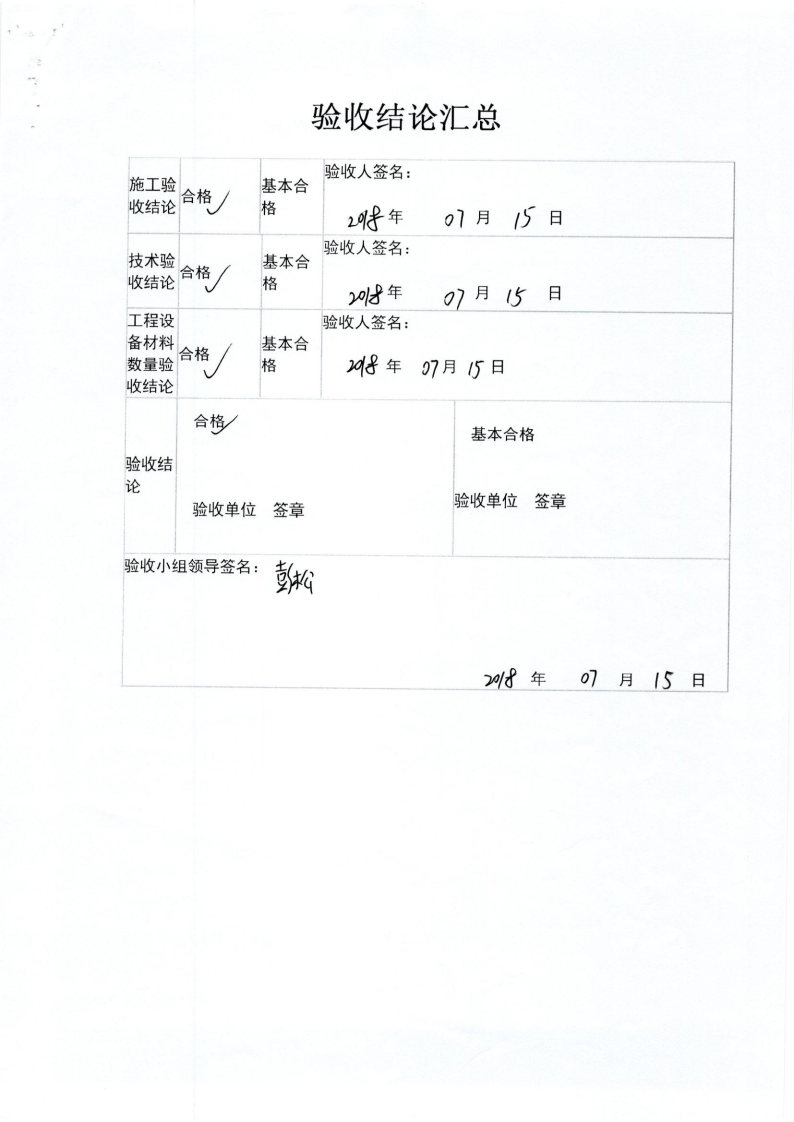 验收结论汇总
施工验
收结论
合格✓
基本合
格
验收人签名：
2018年 07月 15日
技术验
收结论
合格✓
基本合
格
验收人签名：
2018年 07月 15 日
工程设
备材料
数量验
收结论
合格✓
基本合
格
验收人签名：
2018年 07月 15日
验收结
论
合格✓
验收单位 签章
基本合格
验收单位 签章
验收小组领导签名：彭松
2018 年 07 月 15 日